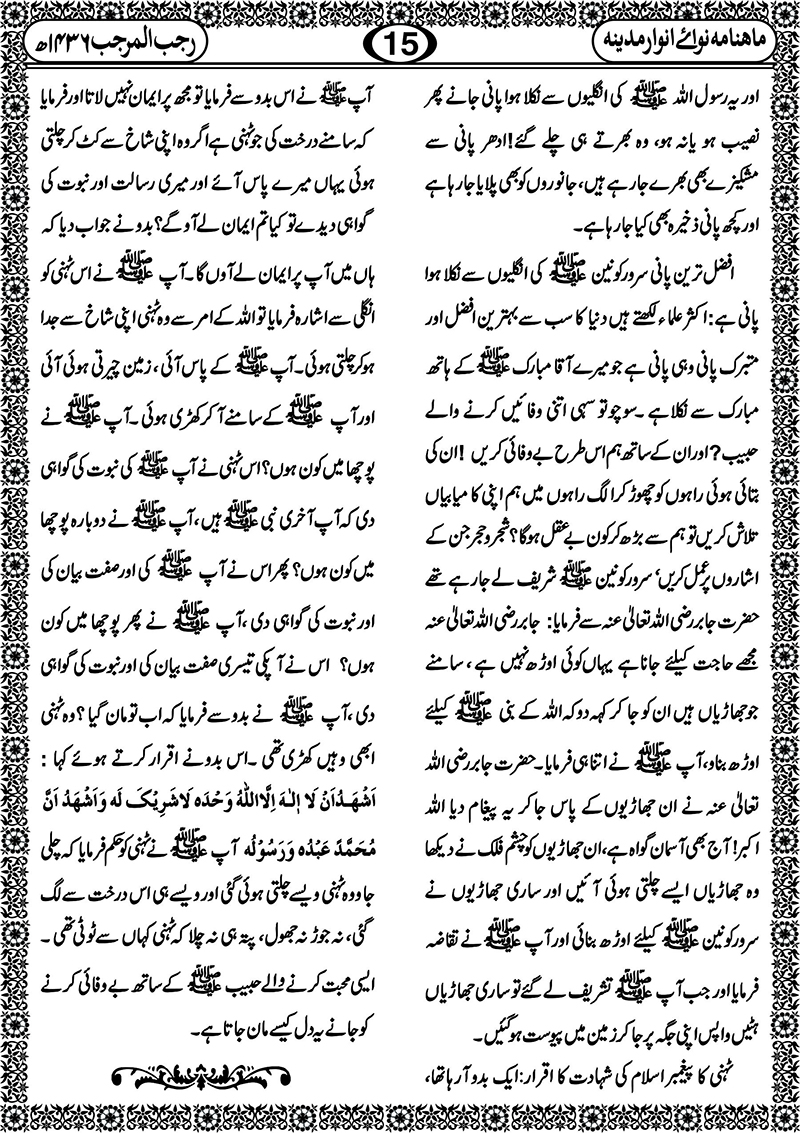 ماهنامہ نوائے انوار مدینہ
15
رجب المرجب ۱۴۳۶ھ
اور یہ رسول اللہ ﷺ کی انگلیوں سے نکلا ہوا پانی جانے پھر
نصیب ہو یا نہ ہو، وہ بھرتے ہی چلے گئے! ادھر پانی سے
مشکیزے بھی بھرے جا رہے ہیں، جانوروں کو بھی پلایا جا رہا ہے
اور کچھ پانی ذخیرہ بھی کیا جا رہا ہے۔
افضل ترین پانی سرور کونین ﷺ کی انگلیوں سے نکلا ہوا
پانی ہے: اکثر علماء لکھتے ہیں دنیا کا سب سے بہترین افضل اور
متبرک پانی وہی پانی ہے جو میرے آقا مبارک ﷺ کے ہاتھ
مبارک سے نکلا ہے۔ سوچو تو سہی اتنی وفائیں کرنے والے
حبیب؟ اور ان کے ساتھ ہم اس طرح بے وفائی کریں! ان کی
بتائی ہوئی راہوں کو چھوڑ کر الگ راہوں میں ہم اپنی کامیابیاں
تلاش کریں تو ہم سے بڑھ کر کون بے عقل ہوگا؟ شجر و حجر جن کے
اشاروں پر عمل کریں‘ سرور کونین ﷺ شریف لے جا رہے تھے
حضرت جابر رضی اللہ تعالیٰ عنہ سے فرمایا: جابر رضی اللہ تعالیٰ عنہ
مجھے حاجت کیلئے جانا ہے یہاں کوئی اوڑھ نہیں ہے، سامنے
جو جھاڑیاں ہیں ان کو جا کر کہہ دو کہ اللہ کے بنی ﷺ کیلئے
اوڑھ بناو، آپ ﷺ نے اتنا ہی فرمایا۔ حضرت جابر رضی اللہ
تعالیٰ عنہ نے ان جھاڑیوں کے پاس جا کر یہ پیغام دیا اللہ
اکبر! آج بھی آسمان گواہ ہے، ان جھاڑیوں کو چشم فلک نے دیکھا
وہ جھاڑیاں ایسے چلتی ہوئی آئیں اور ساری جھاڑیوں نے
سرور کونین ﷺ کیلئے اوڑھ بنائی اور آپ ﷺ نے تقاضہ
فرمایا اور جب آپ ﷺ تشریف لے گئے تو ساری جھاڑیاں
ہٹیں واپس اپنی جگہ پر جا کر زمین میں پیوست ہو گئیں۔
ٹہنی کا پیغمبر اسلام کی شہادت کا اقرار: ایک بدو آ رہا تھا،
آپ ﷺ نے اس بدو سے فرمایا تو مجھ پر ایمان نہیں لاتا اور فرمایا
کہ سامنے درخت کی جو ٹہنی ہے اگر وہ اپنی شاخ سے کٹ کر چلتی
ہوئی یہاں میرے پاس آئے اور میری رسالت اور نبوت کی
گواہی دیدے تو کیا تم ایمان لے آو گے؟ بدو نے جواب دیا کہ
ہاں میں آپ پر ایمان لے آوں گا۔ آپ ﷺ نے اس ٹہنی کو
انگلی سے اشارہ فرمایا تو اللہ کے امر سے وہ ٹہنی اپنی شاخ سے جدا
ہو کر چلتی ہوئی۔ آپ ﷺ کے پاس آئی، زمین چیرتی ہوئی آئی
اور آپ ﷺ کے سامنے آ کر کھڑی ہوئی۔ آپ ﷺ نے
پوچھا میں کون ہوں؟ اس ٹہنی نے آپ ﷺ کی نبوت کی گواہی
دی کہ آپ آخری نبی ﷺ ہیں، آپ ﷺ نے دوبارہ پوچھا
میں کون ہوں؟ پھر اس نے آپ ﷺ کی اور صفت بیان کی
اور نبوت کی گواہی دی، آپ ﷺ نے پھر پوچھا میں کون
ہوں؟ اس نے آپکی تیسری صفت بیان کی اور نبوت کی گواہی
دی، آپ ﷺ نے بدو سے فرمایا کہ اب تو مان گیا؟ وہ ٹہنی
ابھی وہیں کھڑی تھی۔ اس بدو نے اقرار کرتے ہوئے کہا:
اَشْهَدُاَنْ لَا اِلٰهَ اِلَّا اللّٰهُ وَحْدَه لَاشَرِیْکَ لَه وَاَشْهَدُ اَنَّ
مُحَمَّدً عَبْدُه وَرَسُوْلُه آپ ﷺ نے ٹہنی کو حکم فرمایا کہ چلی
جا وہ ٹہنی ویسے چلتی ہوئی گئی اور ویسے ہی اس درخت سے لگ
گئی، نہ جوڑ نہ جھول، پتہ ہی نہ چلا کہ ٹہنی کہاں سے ٹوٹی تھی۔
ایسی محبت کرنے والے حبیب ﷺ کے ساتھ بے وفائی کرنے
کو جانے یہ دل کیسے مان جاتا ہے۔